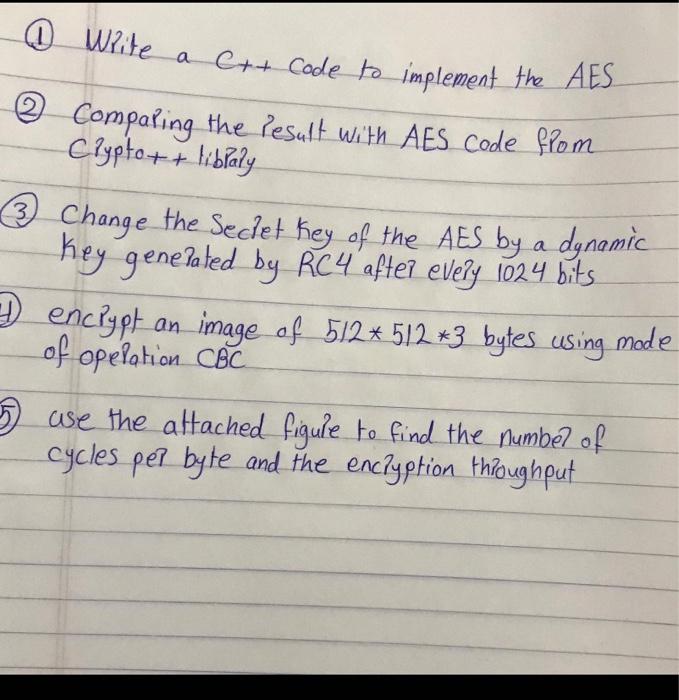 ① Write a C++ Code to implement the AES
② Comparing the result with AES code from
Crypto++ library
③ Change the Secret Key of the AES by a dynamic
Key generated by RC4 after every 1024 bits
4) encrypt an image of 512*512*3 bytes using mode
of operation CBC
5) use the attached figure to find the number of
cycles per byte and the encryption throughput